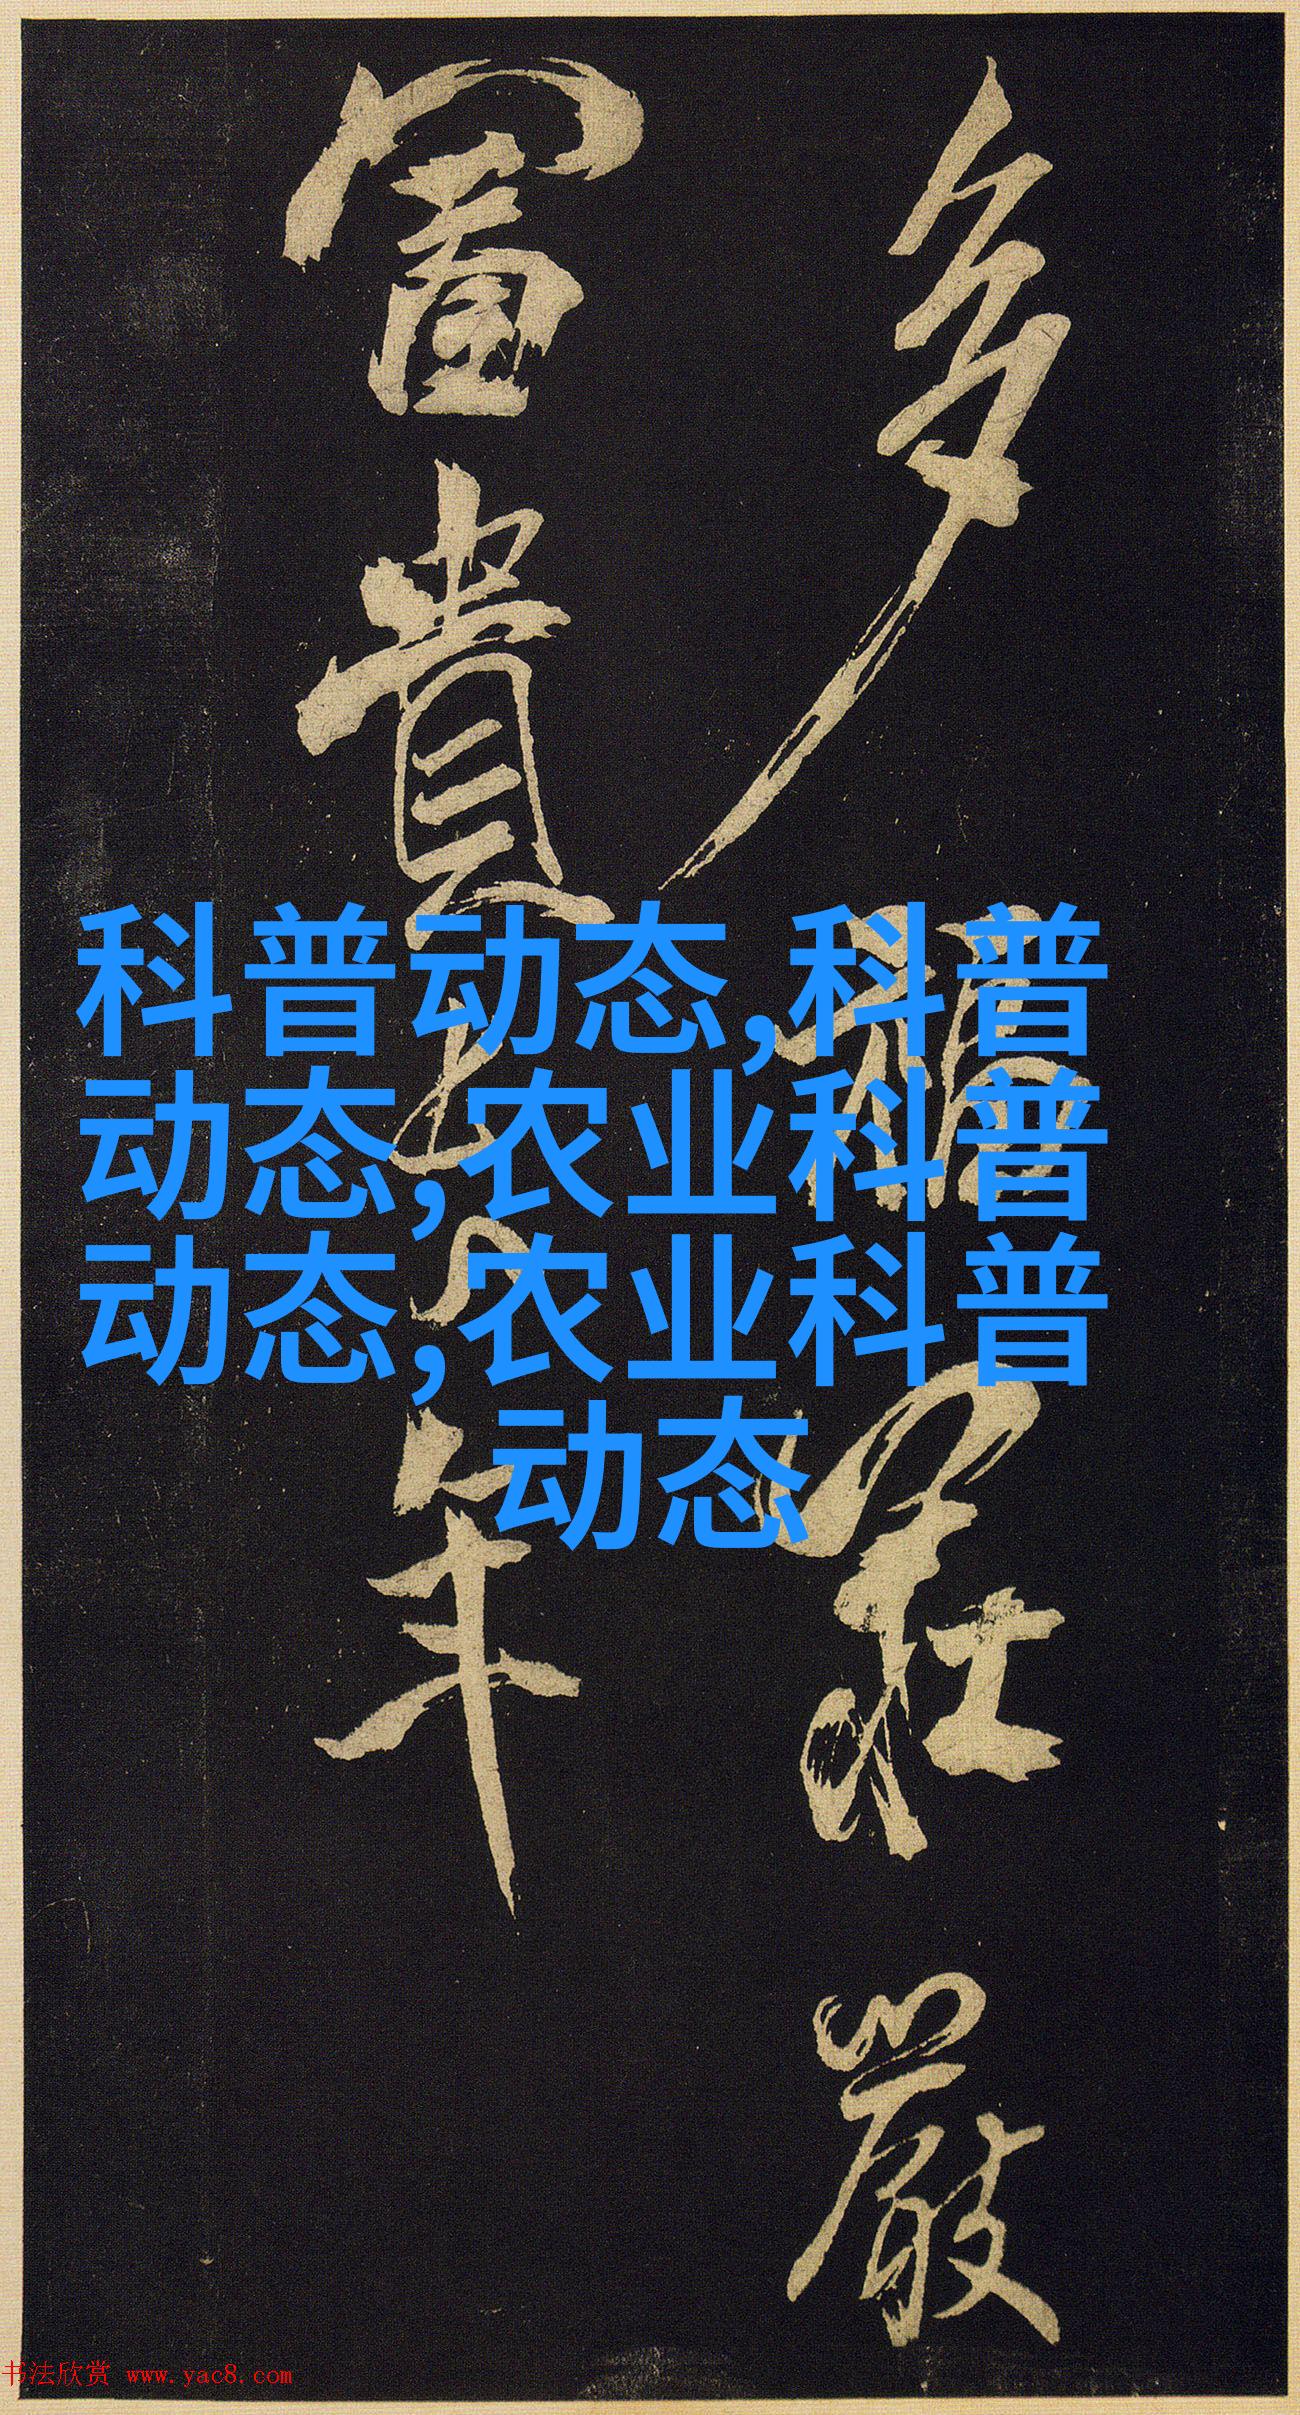 多福莊嚴
富貴
年
科普动态,科普
动态,农业科普
动态,农业科普
动态
书法欣赏 www.yac8.com